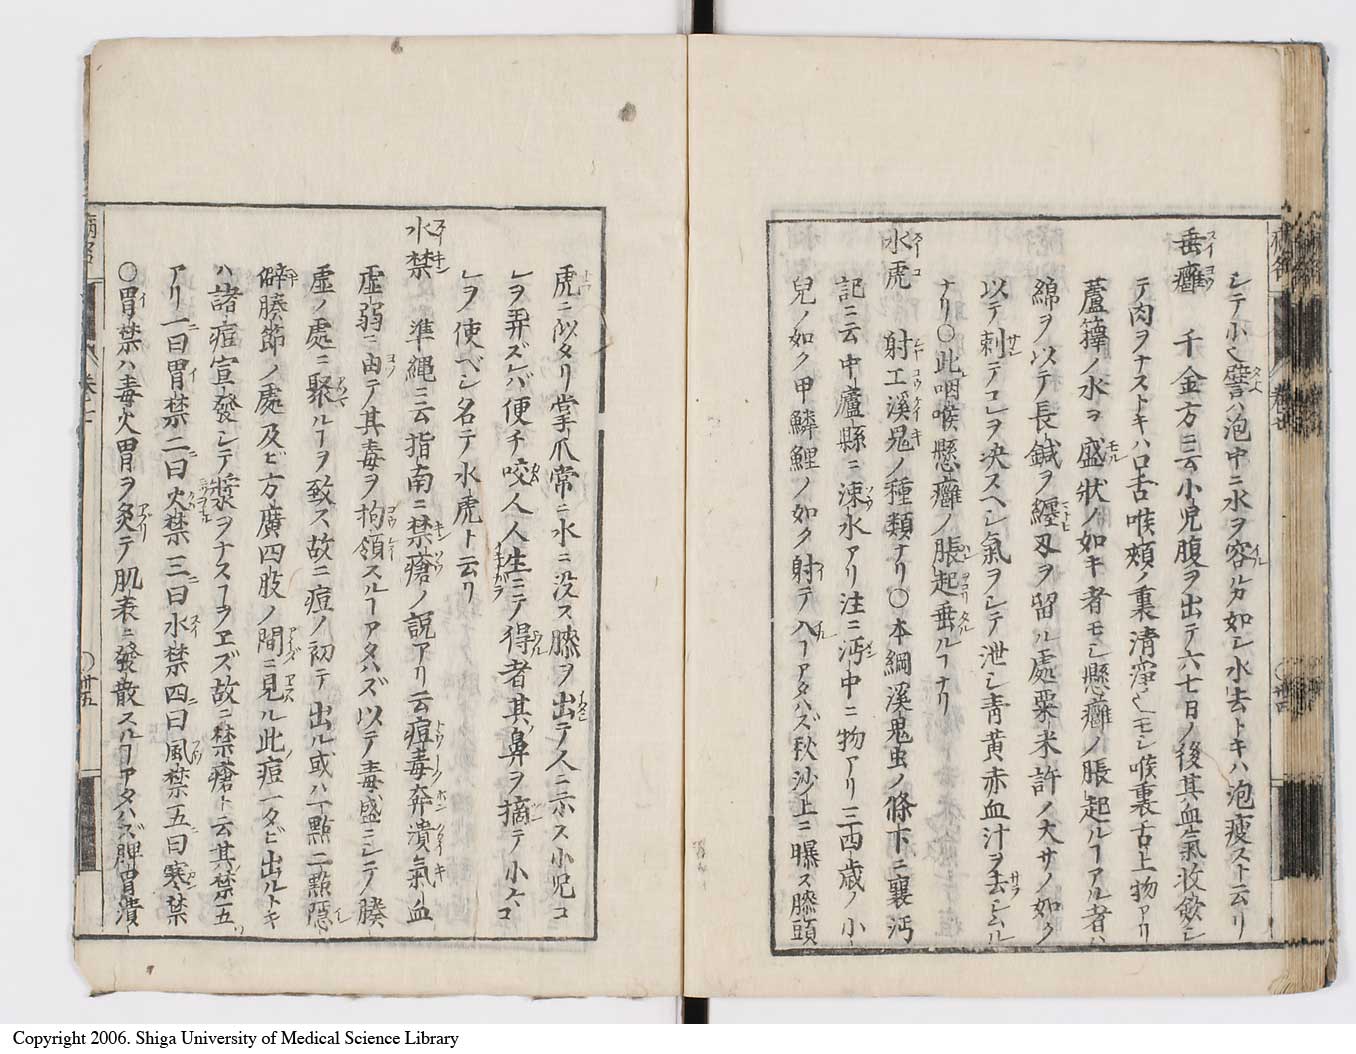 シテ小々譬ハ泡中ニ水ヲ容ルカ如シ水去トキハ泡瘦スト云リ
垂癰 千金方ニ云小児腹ヲ出テ六七日ノ後其血氣收斂シ
テ肉ヲナストキハ口舌喉頰ノ裏清淨也モシ喉裏舌上物アリ
蘆籜ノ水ヲ盛状ノ如キ者モシ懸癰ノ脹起ルヿアル者ハ
綿ヲ以テ長鍼ヲ纏刄ヲ留ル處粟米許ノ大サノ如ク
以テ刺テコレヲ决スヘシ氣ヲシテ泄シ青黄赤血汁ヲ去シムル
ナリ○此咽喉懸癰ノ脹起垂ルヿナリ
水虎 射工溪鬼ノ種類ナリ○本綱溪鬼虫ノ條下ニ襄沔
記ニ云中廬縣ニ涑水アリ注ニ沔中ニ物アリ三四歳ノ小
兒ノ如ク甲鱗鯉ノ如ク射テ入ヿアタハズ秋沙上ニ曝ス膝頭
虎ニ似タリ掌爪常ニ水ニ没ス膝ヲ出テ人ニ示ス小児コ
レヲ弄ズレバ便チ咬人人生ニテ得者其鼻ヲ摘テ小々コ
レヲ使ベシ名テ水虎ト云リ
水禁 準繩ニ云指南ニ禁瘡ノ說アリ云痘毒奔潰氣血
虚弱ニ由テ其毒ヲ拘領スルヿアタハズ以テ毒盛ニシテノ腠
虚ノ處ニ聚ルヿヲ致ス故ニ痘ノ初テ出ル或ハ一點二點隠
僻腠節ノ處及ビ方廣四肢ノ間ニ見ル此痘一タビ出ルトキ
ハ諸痘宣發シテ漿ヲナスヿヲヱズ故ニ禁瘡ト云其禁五
アリ一曰胃禁二曰火禁三曰水禁四曰風禁五曰寒禁
○胃禁ハ毒火胃ヲ灸テ肌表ニ發散スルヿアタハズ脾胃潰
卷十
○廿五
Copyright 2006. Shiga University of Medical Science Library